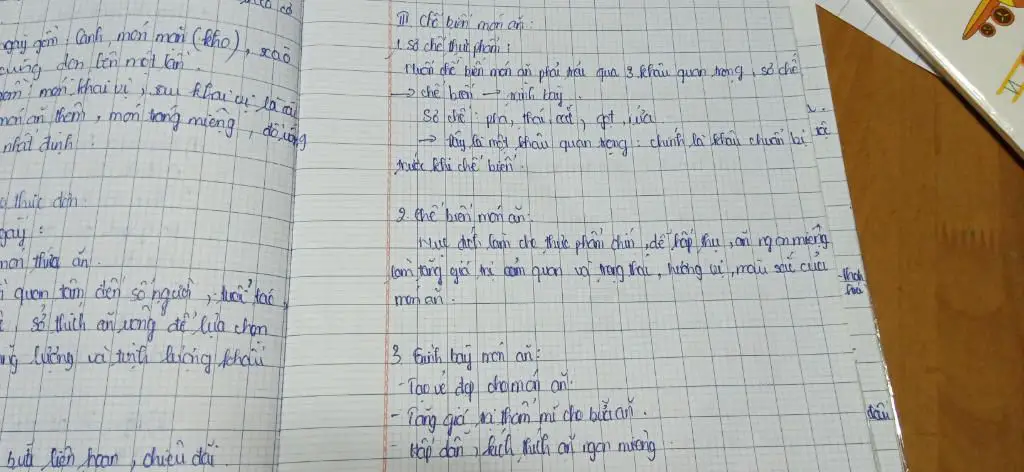 ngày gồm: Canh món mặn (kho), xào
dùng đơn lên một lần.
gồm: món khai vị, sau khai vị là các
món ăn thêm, món tráng miệng, đồ uống
nhất định.
thực đơn
ngày:
món thừa ăn.
quan tâm đến số người, tuổi tác,
sở thích ăn uống để lựa chọn
lượng và tình lượng khẩu
buổi liên hoan, chiêu đãi.
III chế biến món ăn:
1, Sơ chế thực phẩm:
Muốn chế biến món ăn phải trải qua 3 khâu quan trọng, sơ chế
→ chế biến → trình bày.
Sơ chế: pha, thái, cắt, gọt, rửa.
→ Đây là một khâu quan trọng: chính là khâu chuẩn bị
trước khi chế biến.
2. Chế biến món ăn:
Mục đích làm cho thực phẩm chín, dễ hấp thu, ăn ngon miệng
làm tăng giá trị cảm quan về trạng thái, hương vị, màu sắc của
món ăn.
3 Trình bày món ăn:
- Tạo vẻ đẹp cho món ăn.
- Tăng giá trị thẩm mĩ cho bữa ăn.
- Hấp dẫn, kích thích ăn ngon miệng.
dầu